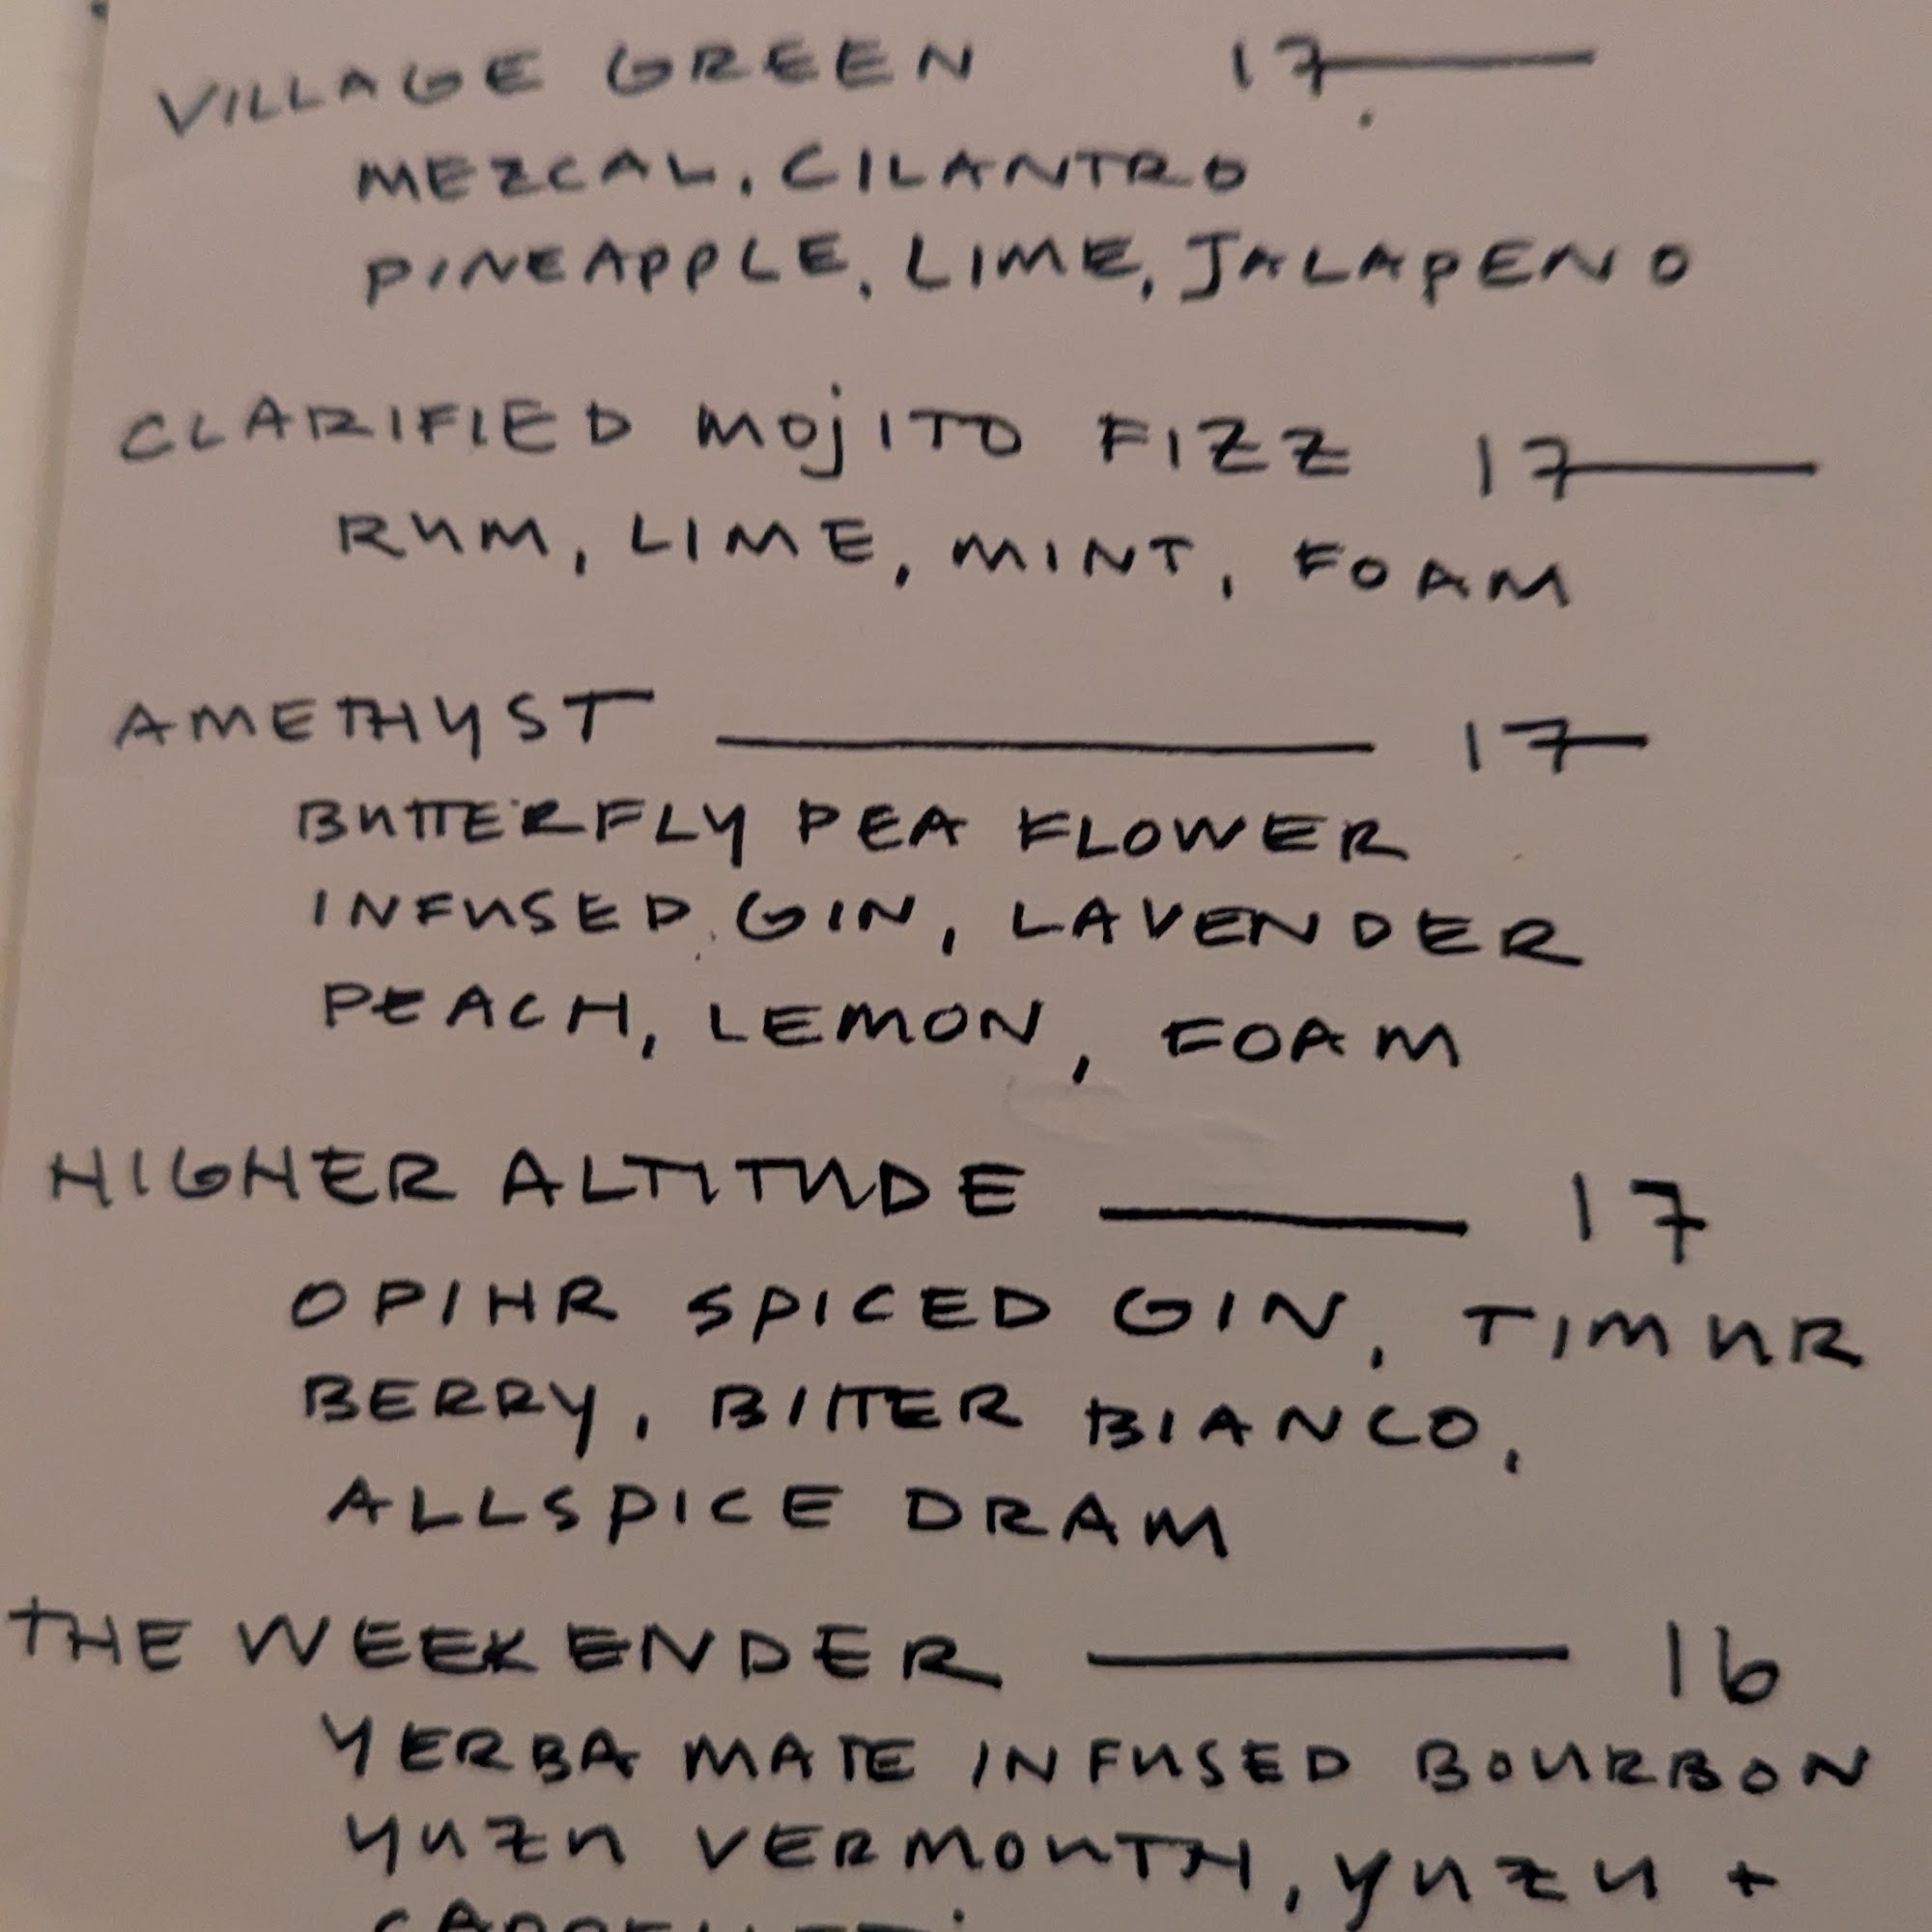 VILLAGE GREEN 17
MEZCAL, CILANTRO
PINEAPPLE, LIME, JALAPENO
CLARIFIED MOJITO FIZZ 17
RUM, LIME, MINT, FOAM
AMETHYST 17
BUTTERFLY PEA FLOWER
INFUSED GIN, LAVENDER
PEACH, LEMON, FOAM
HIGHER ALTITUDE 17
OPIHR SPICED GIN, TIMUR
BERRY, BITTER BIANCO,
ALLSPICE DRAM
THE WEEKENDER 16
YERBA MATE INFUSED BOURBON
YUZU VERMOUTH, YUZU +